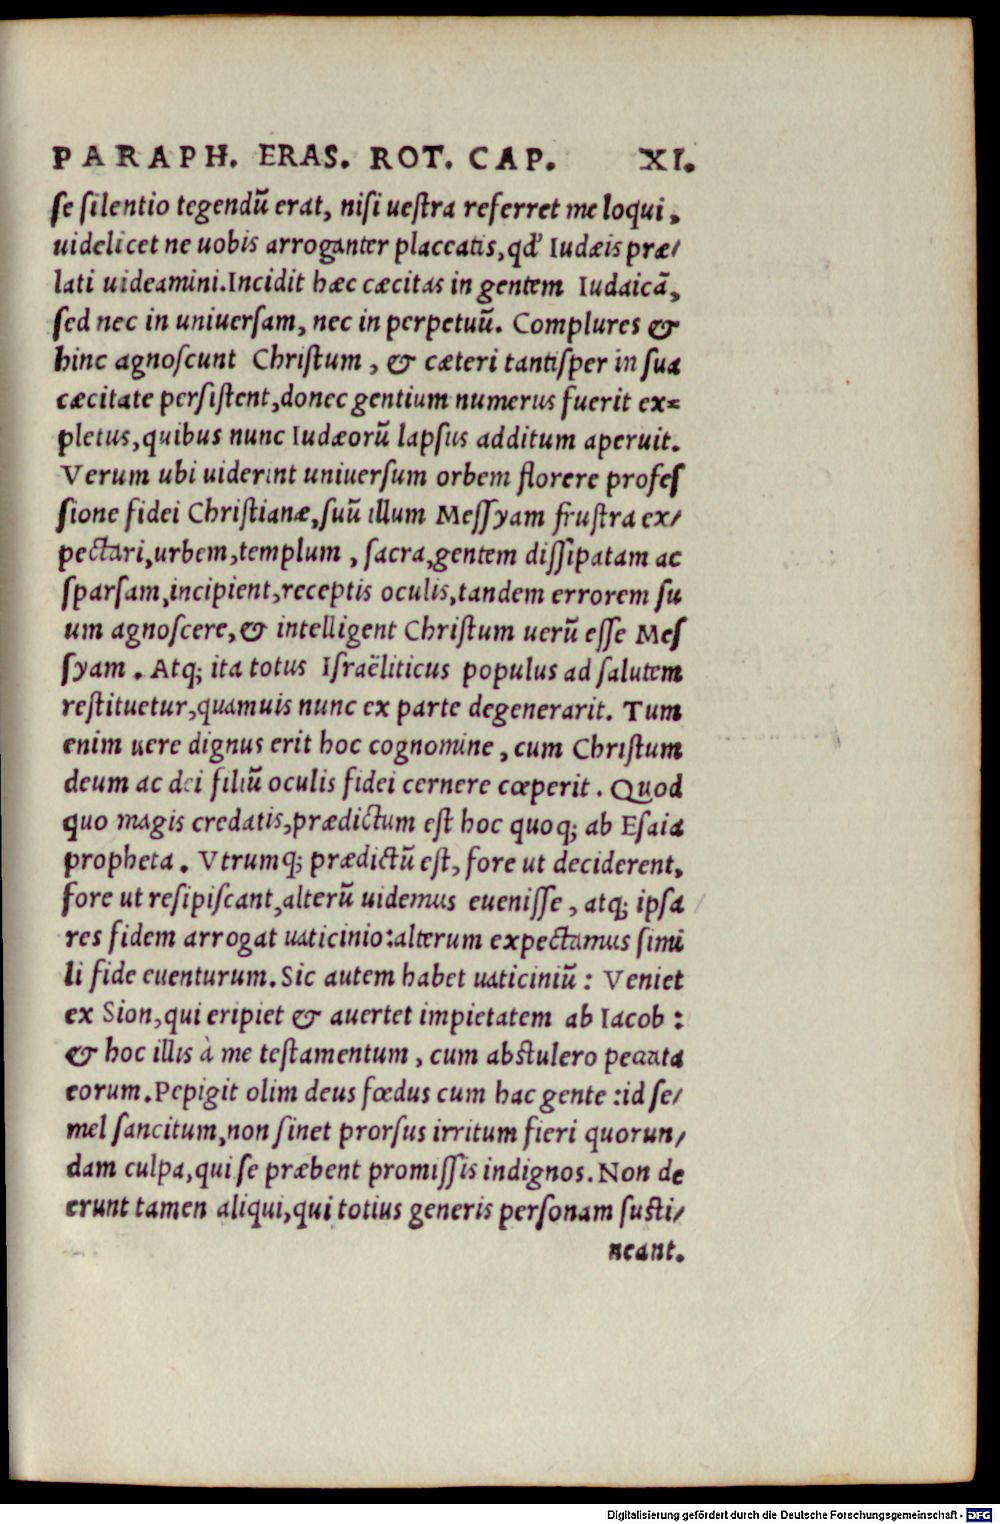 PARAPH. ERAS. ROT. CAP. XI.
ſe ſilentio tegendũ erat, niſi ueſtra referret me loqui,
uidelicet ne uobis arroganter placeatis, qd' Iudæis præ/
lati uideamini. Incidit hæc cæcitas in gentem Iudaicã,
ſed nec in uniuerſam, nec in perpetuũ. Complures &
hinc agnoſcunt Chriſtum, & cæteri tantiſper in ſua
cæcitate perſiſtent, donec gentium numerus fuerit ex=
pletus, quibus nunc Iudæorũ lapſus additum aperuit.
Verum ubi uiderint uniuerſum orbem florere profeſ
ſione fidei Chriſtianæ, ſuũ illum Meſſyam fruſtra ex/
pectari, urbem, templum, ſacra, gentem diſſipatam ac
ſparſam, incipient, receptis oculis, tandem errorem ſu
um agnoſcere, & intelligent Chriſtum uerũ eſſe Meſ
ſyam. Atq; ita totus Iſraëliticus populus ad ſalutem
reſtituetur, quamuis nunc ex parte degenerarit. Tum
enim uere dignus erit hoc cognomine, cum Chriſtum
deum ac dei filiũ oculis fidei cernere cœperit. Quod
quo magis credatis, prædictum eſt hoc quoq; ab Eſaia
propheta. Vtrumq; prædictũ eſt, fore ut deciderent,
fore ut reſipiſcant, alterũ uidemus eueniſſe, atq; ipſa
res fidem arrogat uaticinio: alterum expectamus ſimi
li fide euenturum. Sic autem habet uaticiniũ: Veniet
ex Sion, qui eripiet & auertet impietatem ab Iacob:
& hoc illis à me teſtamentum, cum abſtulero peccata
eorum. Pepigit olim deus fœdus cum hac gente: id ſe/
mel ſancitum, non ſinet prorſus irritum fieri quorun/
dam culpa, qui ſe præbent promiſſis indignos. Non de
erunt tamen aliqui, qui totius generis perſonam ſuſti/
neant.
Digitalisierung gefördert durch die Deutsche Forschungsgemeinschaft - DFG